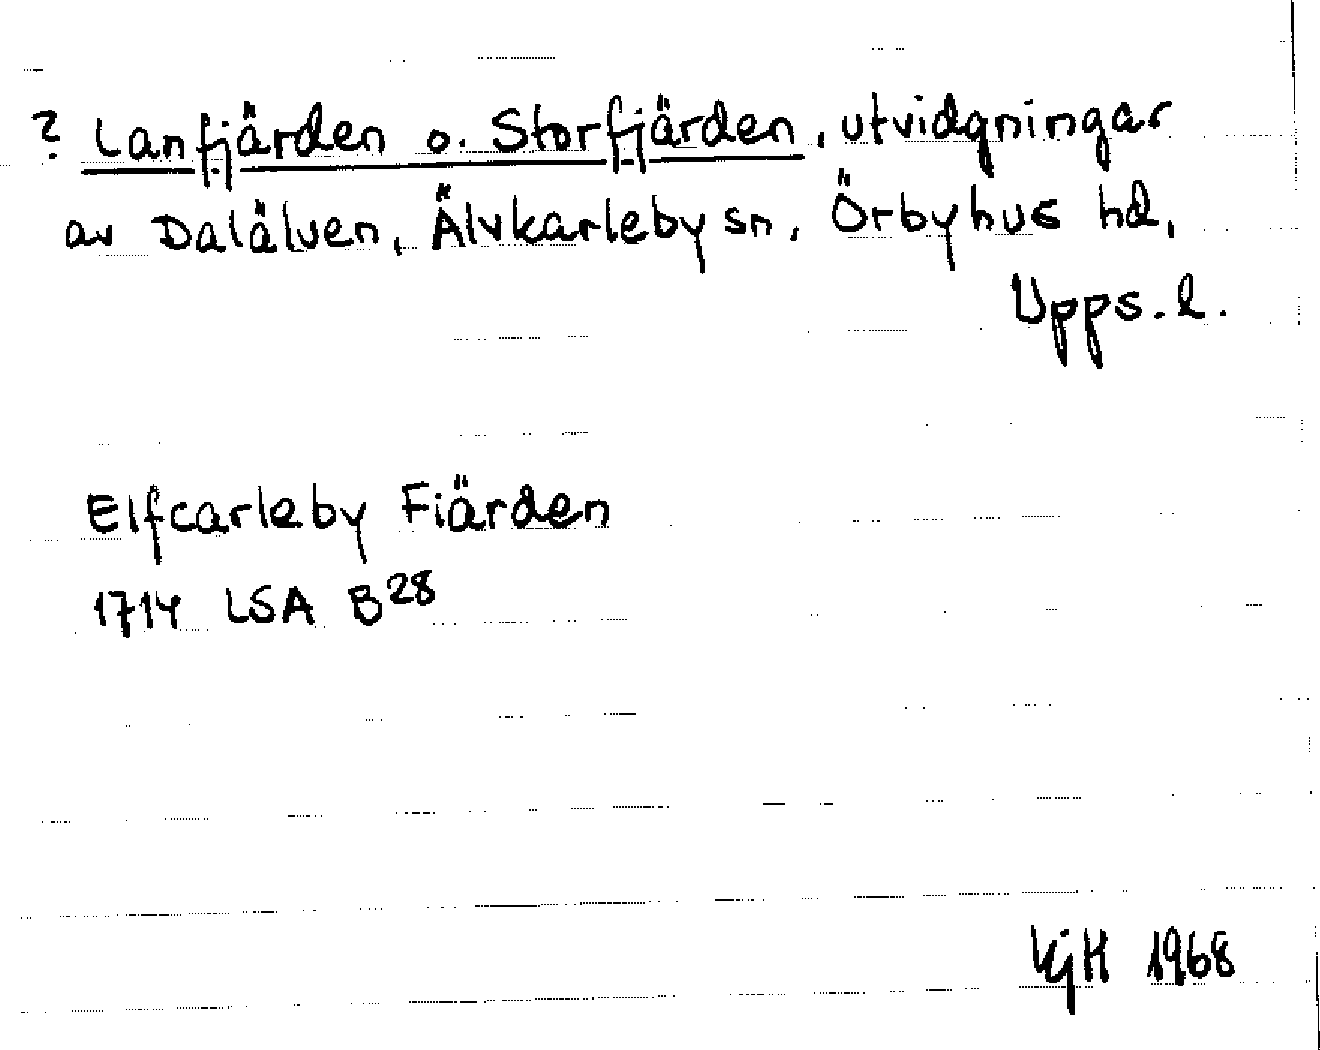 ? Lanfjärden o. Storfjärden, utvidgningar
av Dalälven, Älvkarleby sn, Örbyhus hd,
Upps. l.
Elfcarleby Fiärden
1714 LSA B28
KjH 1968